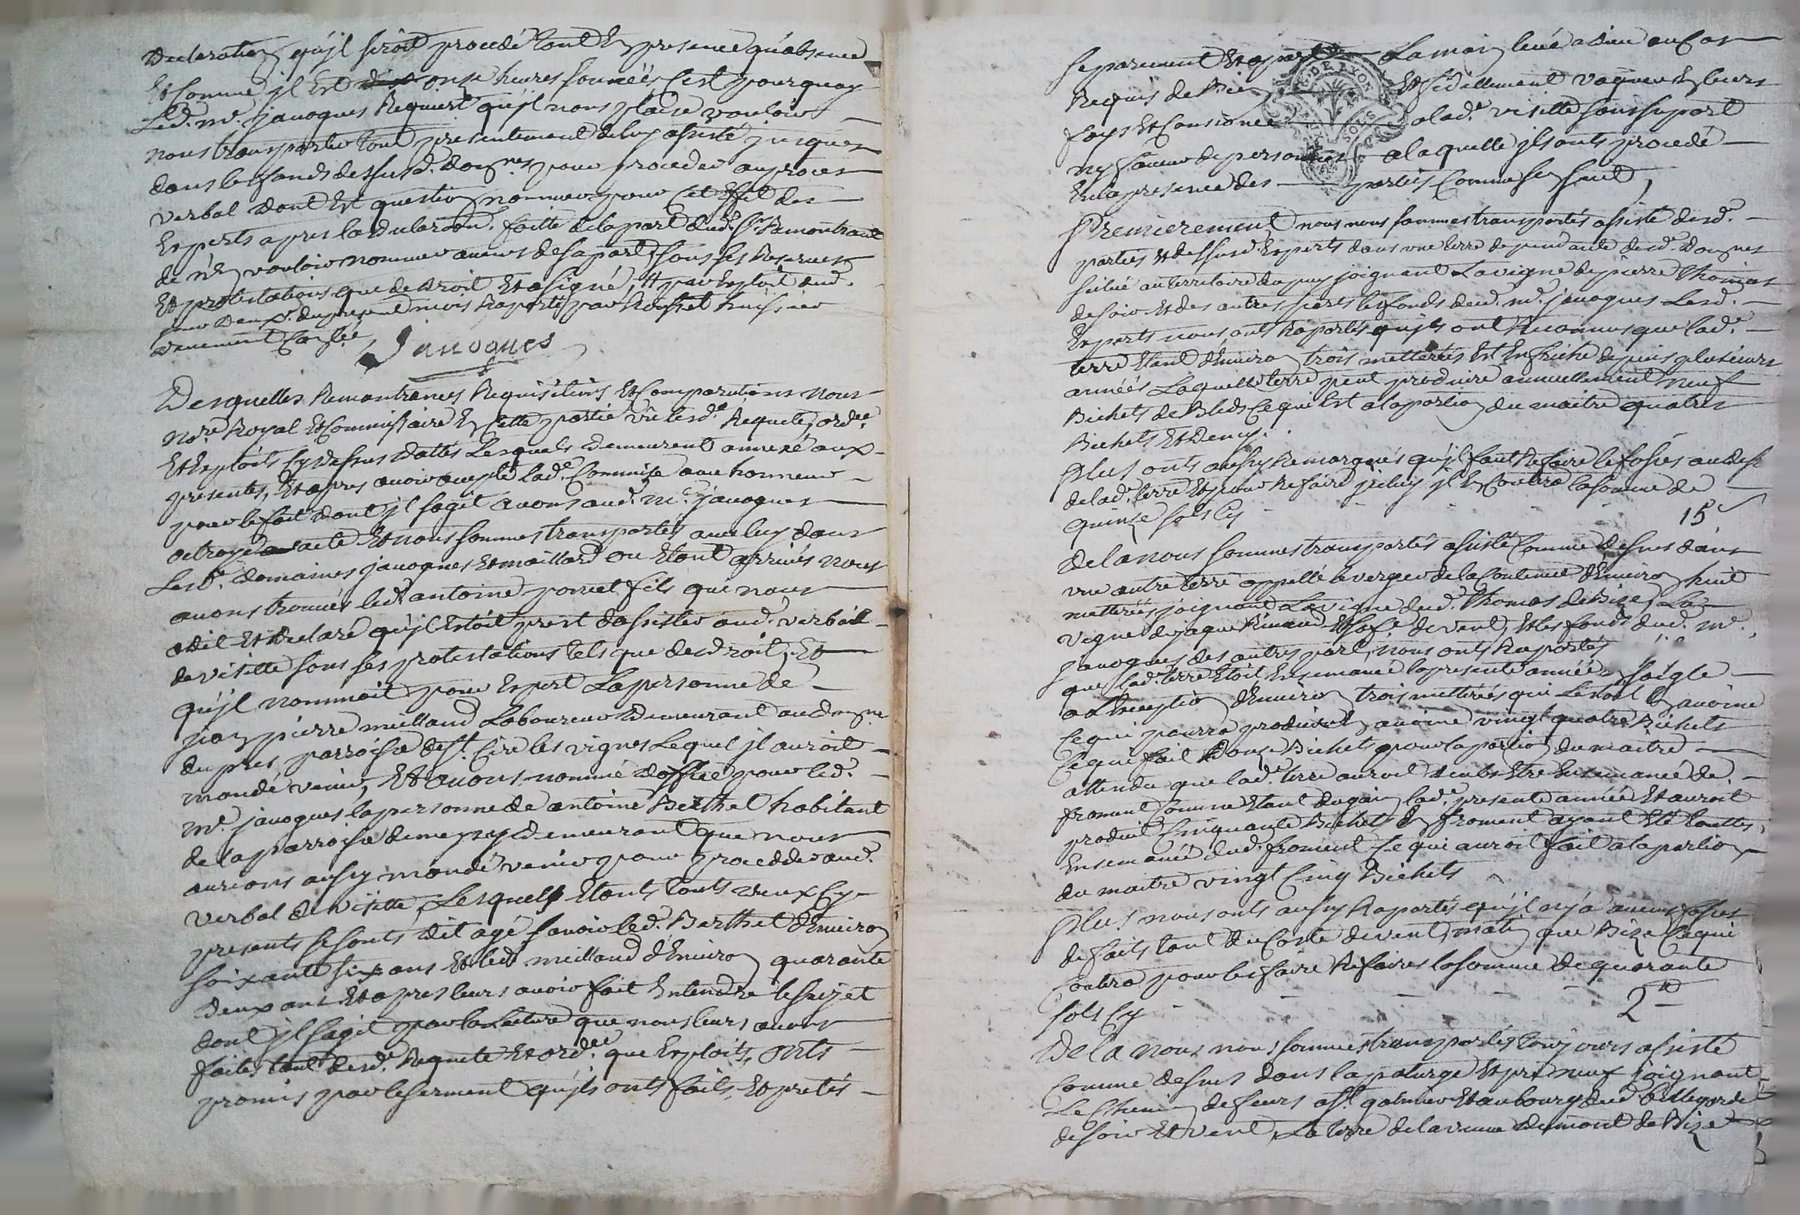 declaration qujl seroit procedé tant En presence qu'absence
Et comme jl Est onze heures sonnéés C'est pourquoy
Led. mr. janoques Requiert qu'jl nous plaise vouloir
nous transporter tout presentement de luy assisté jusques
dans les fonds desusd. dom.nes pour proceder au proces
verbal dont Est question nommer pour Cet Effet des
Experts apres la declaraon. faitte de la part dud. Sr Remontrant
de n'En vouloir nommer aucuns de sa part sous ses Reserves
Et protestations que de droit Et a signé, par Exploit dud.
jour deux du present mois Raporté par huissier
duement Conflé
Janoques
Desquelles Remontrances Requisitions Et Comparutions nous
nore Royal Et Commissaire En Cette partie vû lesd. Requete, ordce
Et Exploits Cy dessus dattés Lesquels demeurent annexé aux
presentes, Et apres avoir accepté lad. Commission avec honneur
pour le fait dont jl sagit avons aud. mr. janoques
octroyé acte Et nous sommes transportés avec luy dans
Lesd. domaines janoques Et maillard ou Etant arrivés nous
avons trouvés led. antoine poncet fils qui nous
a dit Et declaré qu'jl Estoit prest d'assister aud. verbail
de visitte sous ses protestations tels que de droit; Et
qu'jl nommoit pour Expert La personne de
jean pierre meilland Laboureur demeurant au domaine
du pres parroisse de St. Cire les vignes Lequel jl auroit
mandé venir, Et avons nommé d'office pour led.
mr. janoques la personne de antoine Berthet habitant
de la parroisse de meyney demeurant que nous
aurions aussy mandé venir pour proceder aud.
verbal de visitte, Lesquels Etants touts deux Cy
presents se sonts dit agé savoir led. Berthet d'Environ
soixante six ans Et led. meilland d'Environ quarante
deux ans Et apres leurs avoir fait Entendre le sujet
dont jl sagit par la Lecture que nous leurs avons
faite tant desd. Requete Et ordce. que Exploits, onts
promis par le serment qu'jls ont faits, Et pretés
separement Et apart La main levée a Dieu au Cas
Requis de Bien Et fidellement vaquer En leurs
foys Et Consience a lad. visitte sans suport
ny faveur de personnes a laquelle jls onts procedé
En la presence des parties Comme sen suit,
Premierement nous nous sommes transportés assisté desd.
parties Et dessusd. Experts dans une terre dependante desd. domaines
scitué au territoire du puy joignant La vigne de pierre Thomas
de soir Et des autres parts les fonds dud. mr. janoques Lesd.
Experts nous ont Raportés qu'jls ont Reconnus que lad.
terre Etant d'Environ trois metterées Est En friche depuis plusieurs
annéés Laquelle terre peut produire annuellement neuf
Bichets de Bled Ce qui Est a la portion du maitre quatre
Bichets Et demy.
Plus onts aussy Remarqués qu'jl faut Refaire le fossés au
de lad. terre Et pour Refaire jceluy jl En Coutera la somme de
quinze sols Cy 15 s
De la nous sommes transportés assisté Comme dessus dans
une autre terre appellé le verger de la Contenue d'Environ huit
metterées joignant La vigne dud. Thomas de Bize, La
vigne de jaque Rimaud Et de vent, Et les fonds dud. mr.
janoques des autres part, nous onts Raportés
que lad. terre Etoit Ensemancé la presente année En seigle
a L'Exception d'Environ trois metterées qui Le sont En avoine
Ce qui pourra produire En avoine vingt quatre Bichets
Ce qui fait Douze Bichets pour la portion du maitre
attendu que lad. terre auroit deub Estre Ensemancé de
froment Comme Etant de gain lad. presente année Et auroit
produit Cinquante Bichets En froment ayant Eté toutte
Ensemancé dud. froment Ce qui auroit fait a la portion
du maitre vingt Cinq Bichets
Plus nous onts aussy Raportés qu'jl n'y a aucuns fossés
de faits tant du Coste de vent, matin que Bize Ce qui
Coutera pour les faire Refaires la somme de quarante
sols Cy 2 tt
De la nous nous sommes transportés toujours assisté
Comme dessus dans la paturge Et pré neuf joignant
Le Chemin de feurs a St. galmier Et au bourg dud. Bellegarde
de soir Et vent, La terre de la veuve dumont de Bize